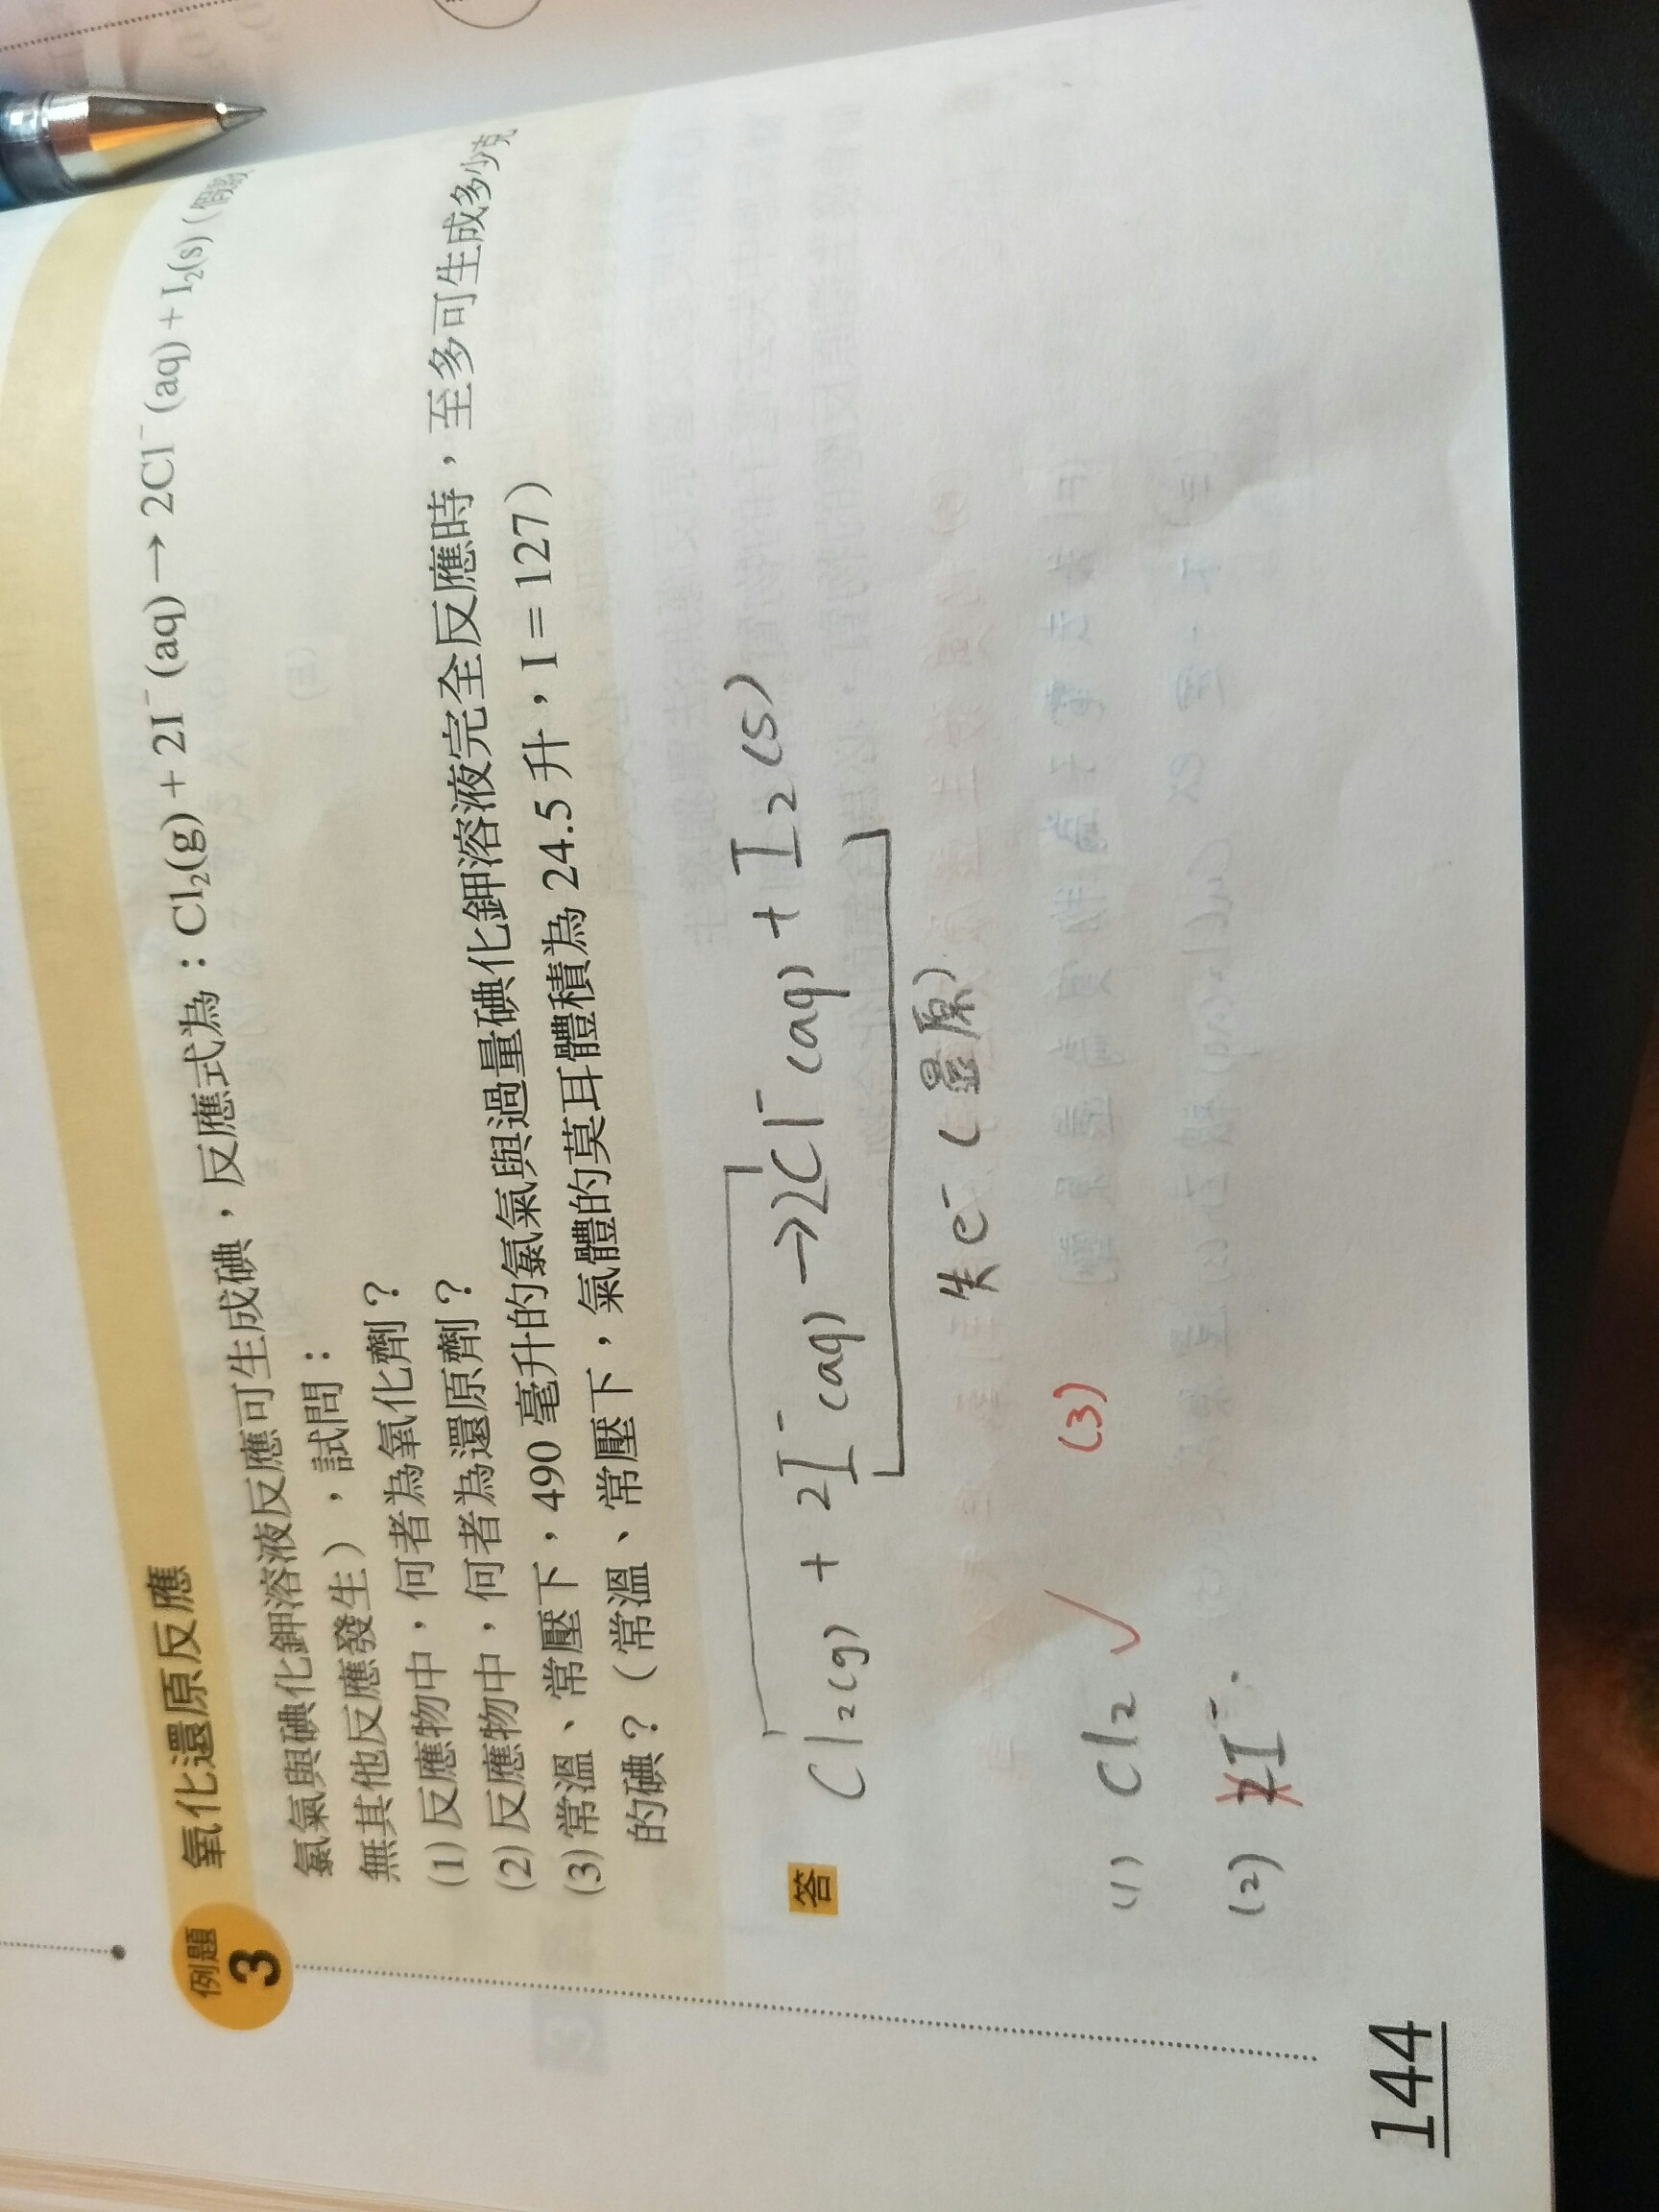 例題
3
氧化還原反應
氯氣與碘化鉀溶液反應可生成碘，反應式為：Cl₂(g) + 2I⁻(aq) → 2Cl⁻(aq) + I₂(s)（假設
無其他反應發生），試問：
(1) 反應物中，何者為氧化劑？
(2) 反應物中，何者為還原劑？
(3) 常溫、常壓下，490 毫升的氯氣與過量碘化鉀溶液完全反應時，至多可生成多少克
的碘？（常溫、常壓下，氣體的莫耳體積為 24.5 升，I = 127）
答
Cl₂(g) + 2I⁻(aq) → 2Cl⁻(aq) + I₂(s)
失e⁻（還原）
(1) Cl₂ ✓
(3)
(2) I⁻.
144